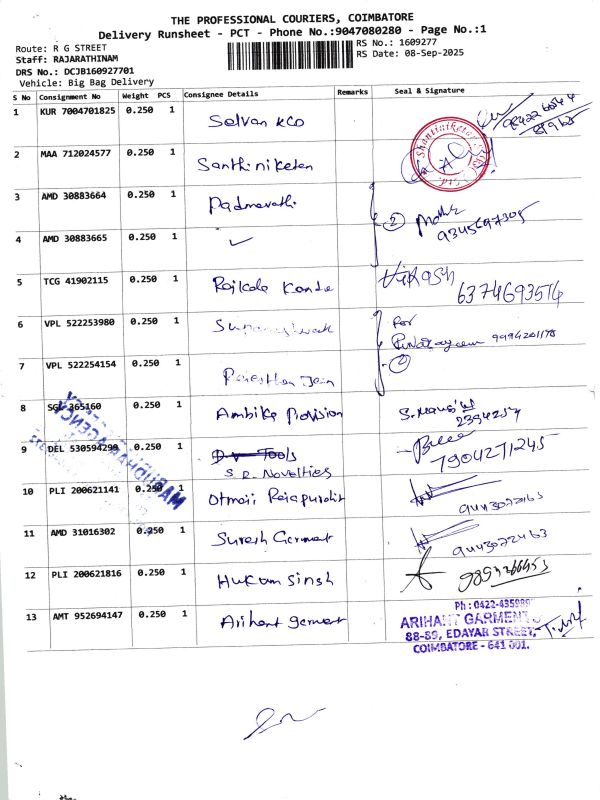 THE PROFESSIONAL COURIERS, COIMBATORE
Delivery Runsheet - PCT - Phone No.:9047080280 - Page No.:1
Route: R G STREET
RS No.: 1609277
Staff: RAJARATHINAM
RS Date: 08-Sep-2025
DRS No.: DCJB160927701
Vehicle: Big Bag Delivery
S No Consignment No Weight PCS Consignee Details Remarks Seal & Signature
1 KUR 7004701825 0.250 1 Selvan &CO
2 MAA 712024577 0.250 1 Santhiniketan
3 AMD 30883664 0.250 1 Padmavathi
2 9345697305
4 AMD 30883665 0.250 1 ✓
5 TCG 41902115 0.250 1 Rajkala 6374693514
6 VPL 522253980 0.250 1 For
9994201178
7 VPL 522254154 0.250 1 Rajesthan Jain
8 365160 0.250 1 Ambika Provision 2394257
9 DEL 530594290 0.250 1 D.V Tools 7904271245
S.R. Novelties
10 PLI 200621141 0.250 1 Otmaji
11 AMD 31016302 0.250 1 Suresh Garment 9443072463
12 PLI 200621816 0.250 1 Hukam Singh
13 AMT 952694147 0.250 1 Arihant garment
Ph : 0422-435989
ARIHANT GARMENTS
88-89, EDAYAR STREET,
COIMBATORE - 641 001.